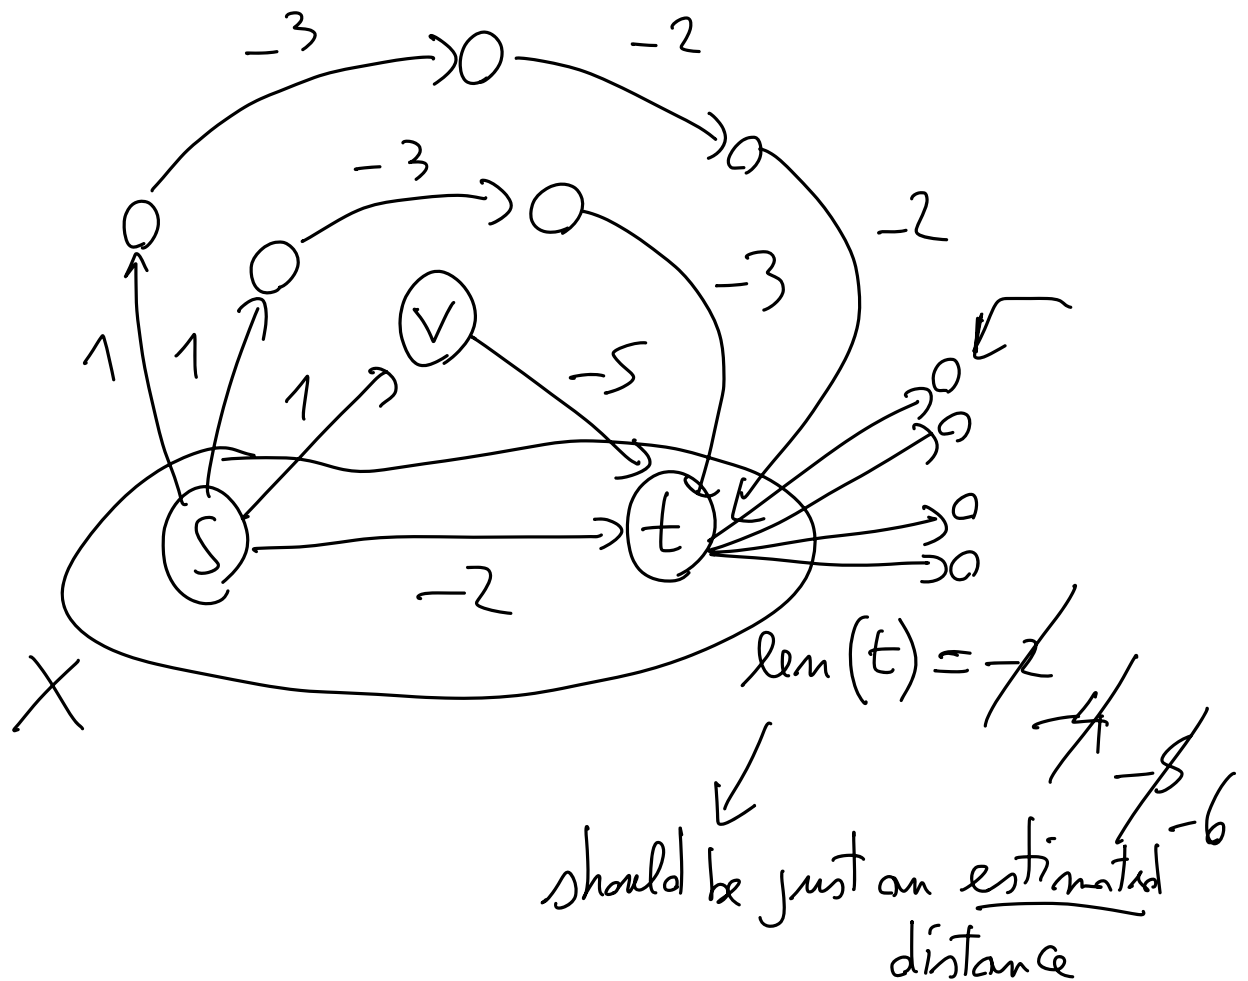 -3
-2
-3
-2
-3
V
1
1
1
-5
S
t
-2
X
len(t) = -2
-4
-5
-6
should be just an estimated
distance